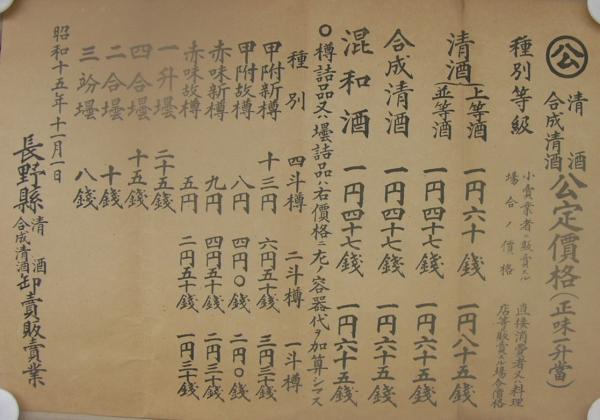 公 清酒 合成清酒 公定價格(正味一升當)
種別等級 小賣業者ニ販賣スル場合ノ價格 直接消費者又ハ料理店等ニ販賣スル場合價格
清酒 上等酒 一円六十銭 一円八十五銭
並等酒 一円四十七銭 一円六十五銭
合成清酒 一円四十七銭 一円六十五銭
混和酒 一円四十七銭 一円六十五銭
〇樽詰品又ハ壜詰品ハ右價格ニ左ノ容器代ヲ加算シマス
種別 四斗樽 二斗樽 一斗樽
甲附新樽 十三円 六円五十銭 三円三十銭
甲附故樽 八円 四円〇銭 二円〇銭
赤味新樽 九円 四円五十銭 二円三十銭
赤味故樽 五円 二円五十銭 一円三十銭
一升壜 二十五銭
四合壜 十五銭
二合壜 十銭
三竕壜 八銭
昭和十五年十一月一日
長野縣 清酒 合成清酒 卸賣販賣業